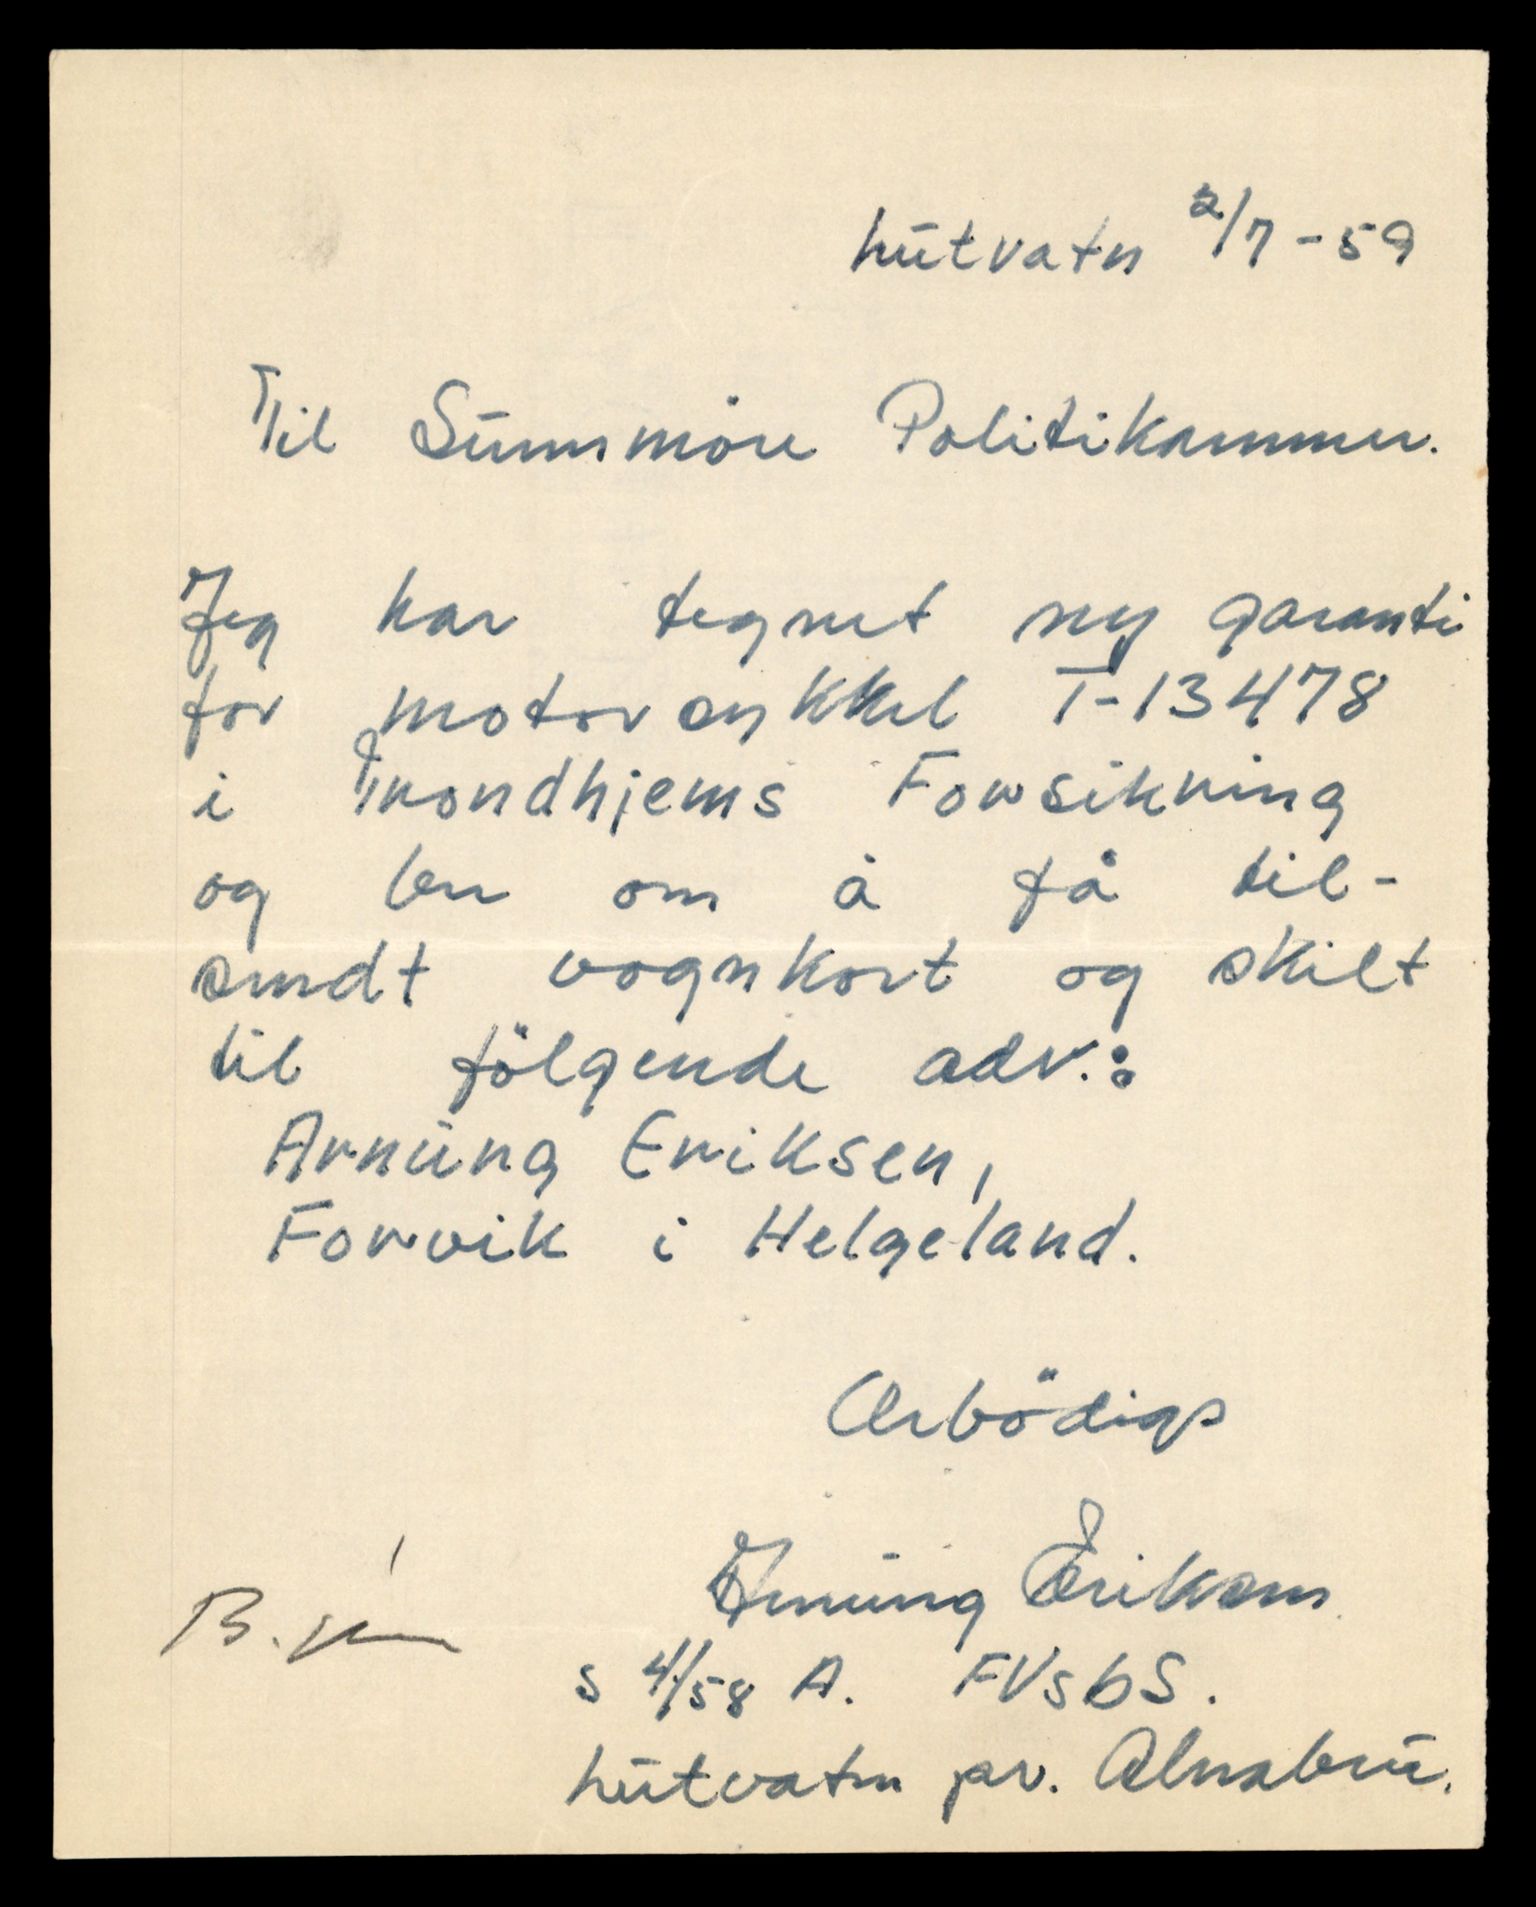 Lutvatn 2/7-59
Til Sunnmöre Politikammer.
Jeg har tegnet ny garanti
for motorsykkel T-13478
i Trondhjems Forsikring
og ber om å få til-
sendt vognkort og skilt
til fölgende adr.:
Arnung Eriksen,
Forvik i Helgeland.
Ærbödigs
Arnung Eriksen
S 4/58 A. FVSbS.
Lutvatn pr. Alnabru.